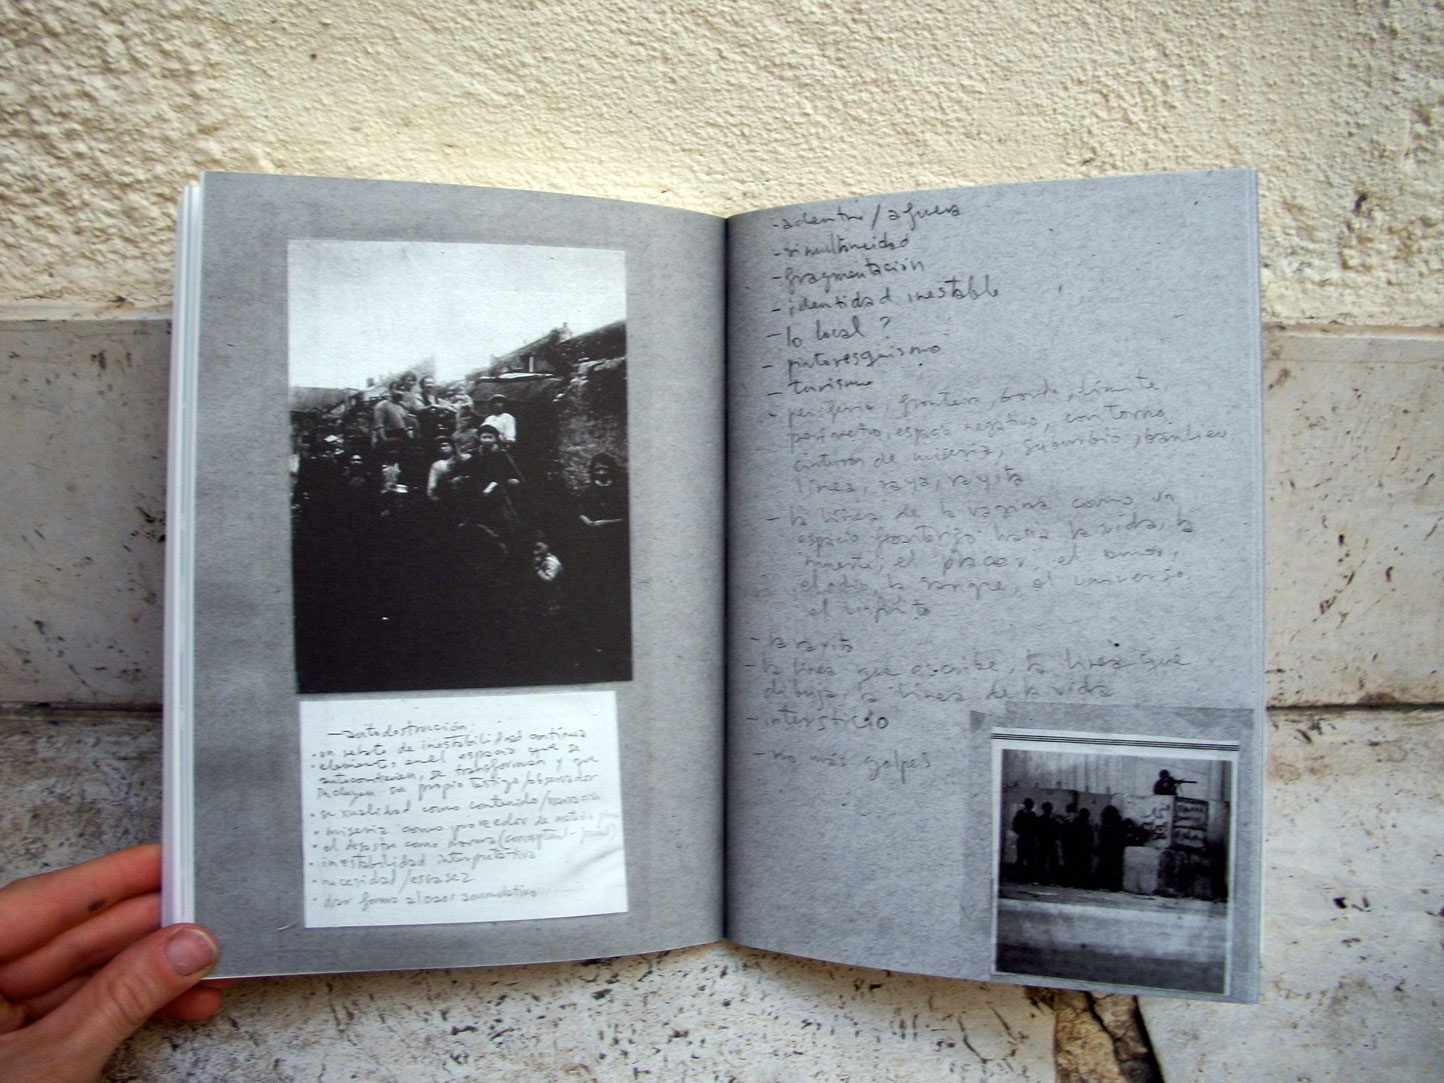 - autodestrucción.
• un relato de inestabilidad continua
• elementos en el espacio que se
autocontienen, se transforman y que
incluyen su propio testigo/observador
• su xualidad como contenido/narración
• miseria como proveedor de materia
• el desastre como norma (conceptual-
• inestabilidad interpretativa
• necesidad/escasez
• dar forma al caos acumulativo
- adentro/afuera
- simultaneidad
- fragmentación
- identidad inestable
- lo local?
- pintoresquismo
- turismo
- periferia, frontera, borde, límite,
perímetro, espacio negativo, contorno,
cinturon de miseria, suburbio, banlieu,
línea, raya, rayita
- la línea de la vagina como un
espacio fronterizo hacia la vida, la
muerte, el placer, el amor,
el odio, la sangre, el universo,
el infinito
- la rayita
- la línea que escribe, la línea que
dibuja, la línea de la vida
- intersticio
- no más golpes